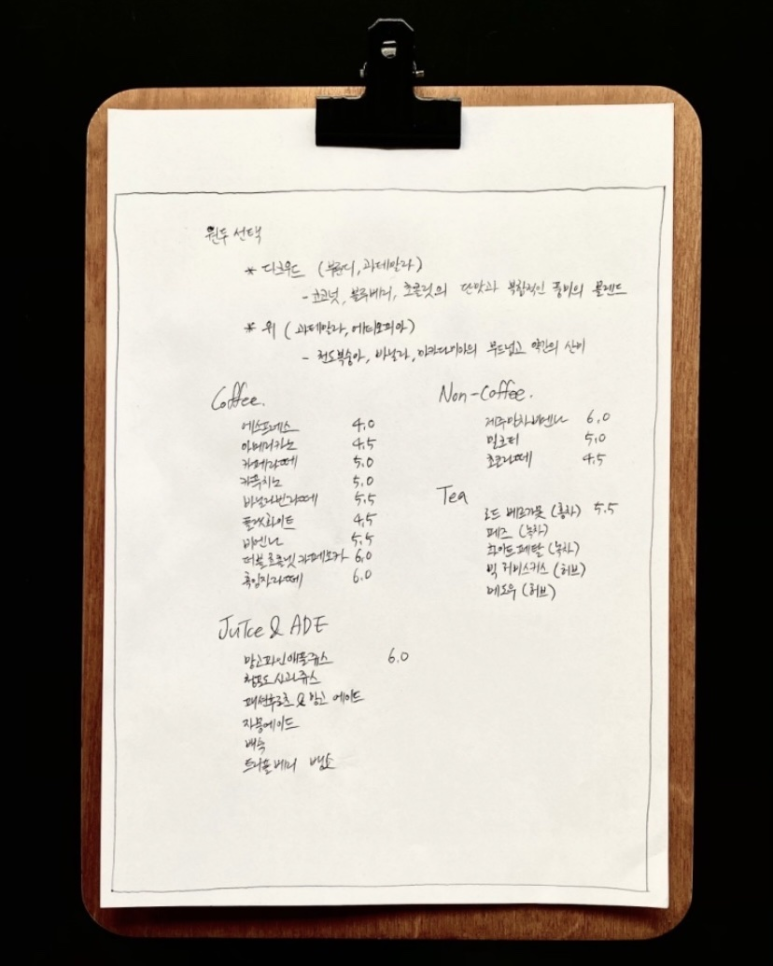 원두 선택
* 디크우드 (부룬디, 과테말라)
- 코코넛, 블루베리, 초콜릿의 단맛과 복합적인 풍미의 블렌드
* 위 (과테말라, 에티오피아)
- 천도복숭아, 바닐라, 마카다미아의 부드럽고 약간의 산미
Coffee.
에스프레소 4.0
아메리카노 4.5
카페라떼 5.0
카푸치노 5.0
바닐라빈라떼 5.5
플랫화이트 4.5
비엔나 5.5
더블초콜릿카페모카 6.0
흑임자라떼 6.0
Non-Coffee.
제주말차비엔나 6.0
밀크티 5.0
초코라떼 4.5
Tea
로드 베르가못 (홍차) 5.5
페즈 (녹차)
화이트페탈 (녹차)
빅 히비스커스 (허브)
메도우 (허브)
JuIce & ADE
망고파인애플쥬스 6.0
청포도 사과쥬스
패션후르츠 & 망고 에이드
자몽에이드
배숙
트리플베리 뱅쇼